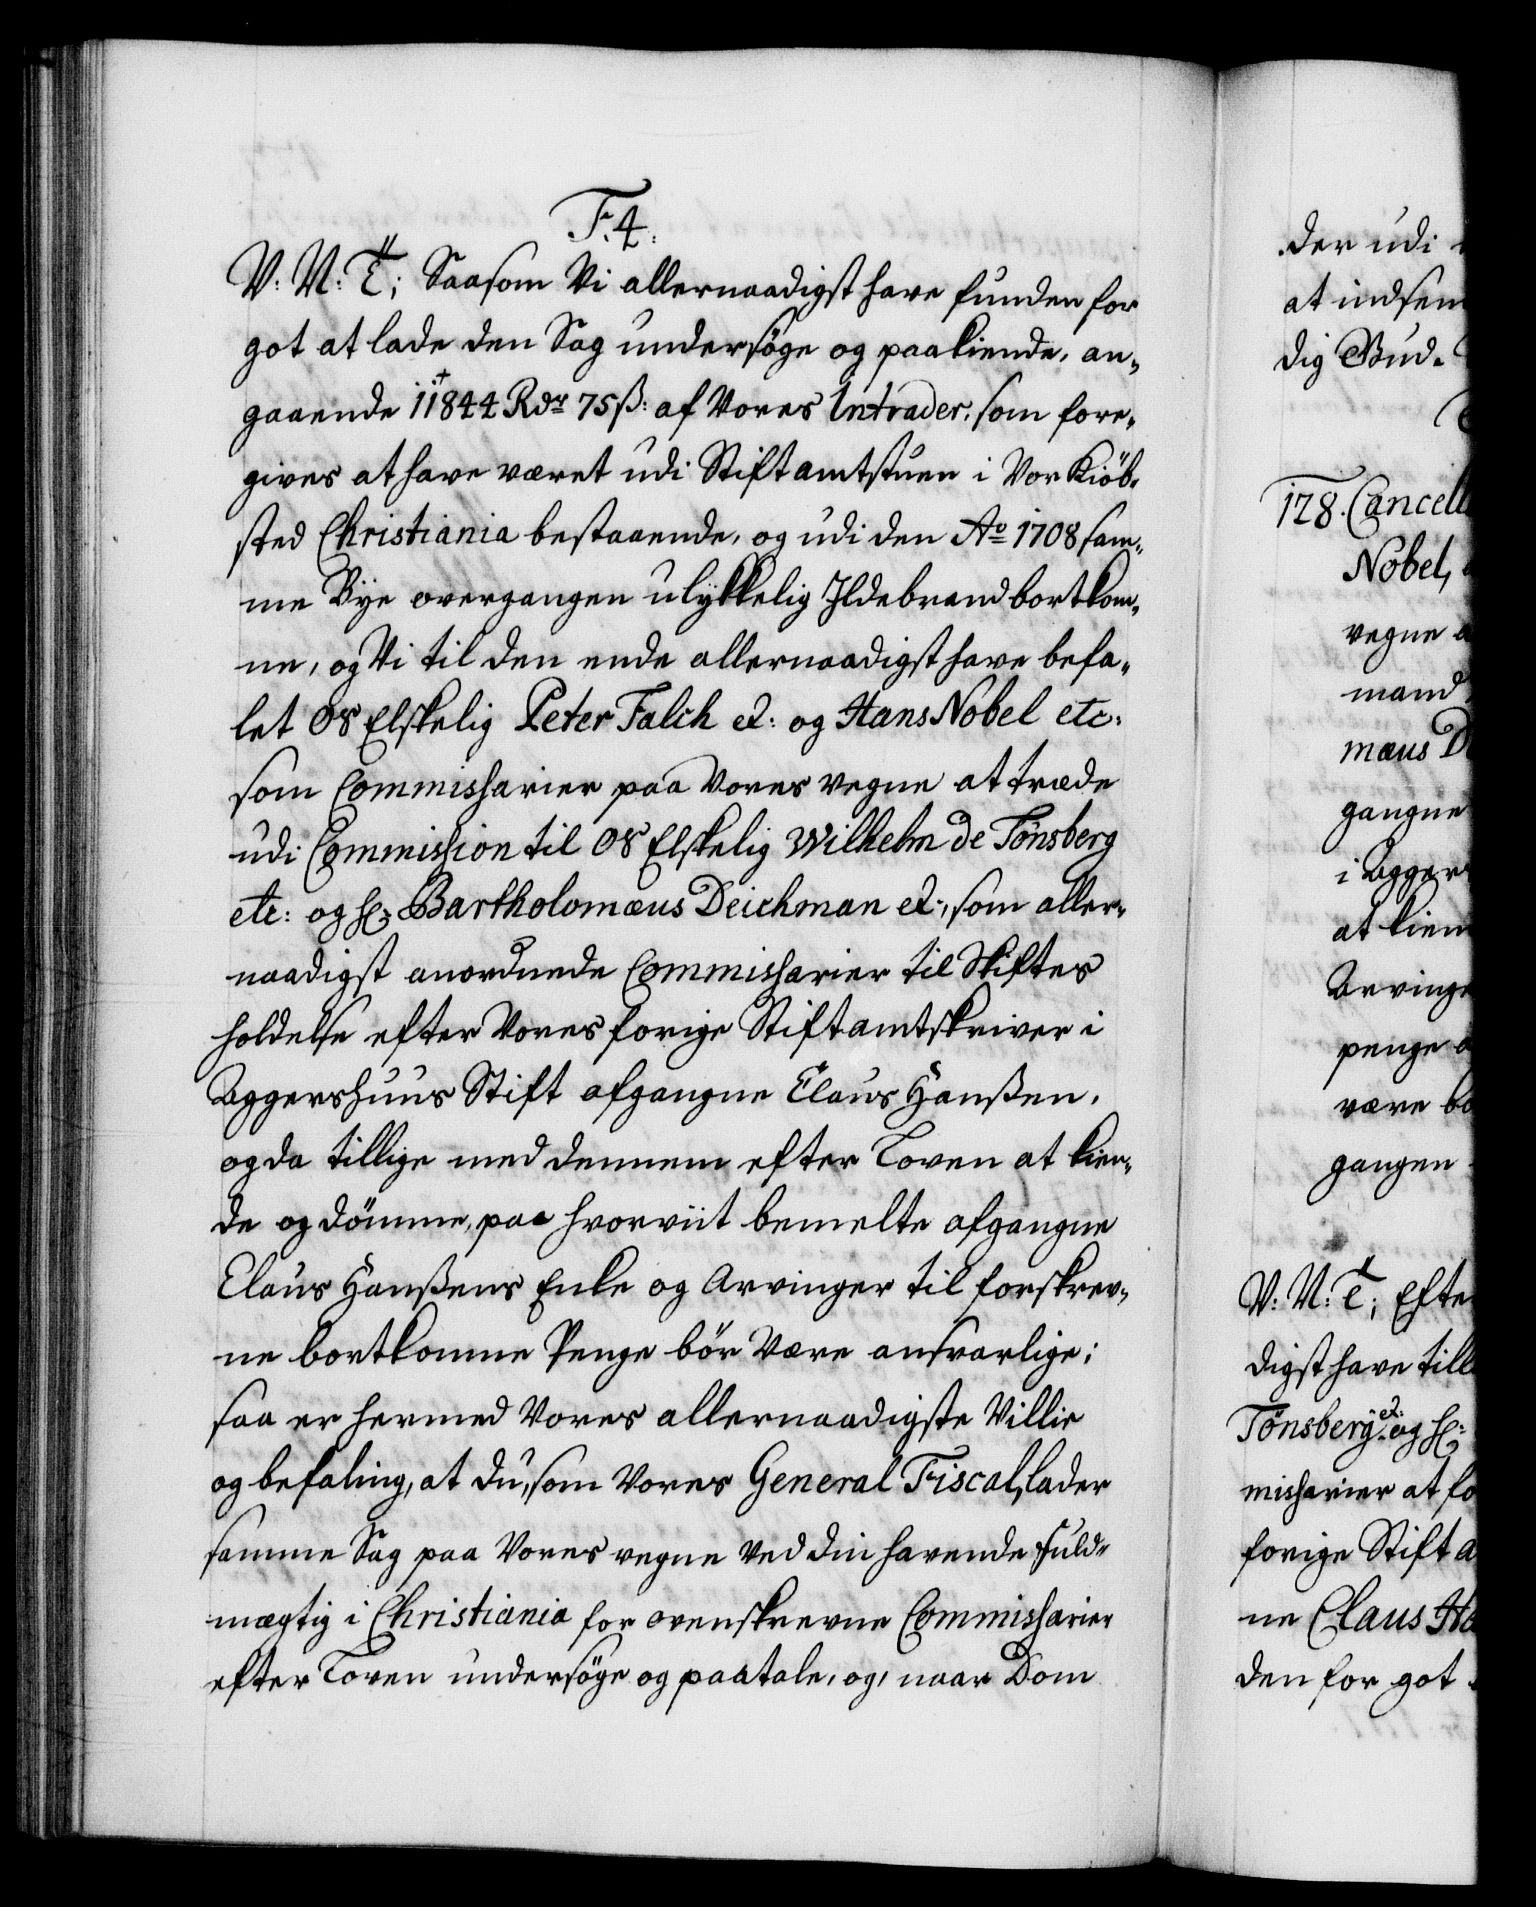 F. 4.
V: N: T; Saasom Vi allernaadigst have funden for
got at lade den Sag undersøge og paakiende, an-
gaaende 11844 Rdr 75 ß: af Vores Intrader, som fore-
gives at have været udi Stiftamtstuen i Vor Kiöb-
sted Christiania bestaaende, og udi den Ao 1708 sam-
me Bye overgangen ulykkelig Ildebrand bortkom-
ne, og Vi til den ende allernaadigst have befa-
let OS Elskelig Peter Falch et: og Hans Nobel etc:
som Commissarier paa Vores vegne at træde
udi Commission til OS Elskelig Wilhelm de Tönsberg
etc: og Hr: Bartholomæus Deichman et:, som aller-
naadigst anordnede Commissarier til Skiftes
holdelse efter Vores forige Stiftamtskriver i
Aggershuus Stift afgangne Claus Hanßen,
og da tillige med dennem efter Loven at kien-
de og dömme, paa hvorviit bemelte afgangne
Claus Hanßens Enke og Arvinger til forskrev-
ne bortkomne Penge bör være ansvarlige;
saa er hermed Vores allernaadigste Villie
og befaling, at du, som Vores General Fiscal, lader
samme Sag paa Vores vegne ved din havende fuld-
mægtig i Christiania for ovenskrevne Commissarier
efter Loven undersöge og paatale, og, naar Dom
der udi
at indsen
dig Bud.
178. Cancell
Nobel,
vegne
mand
mæus D
gangne
i Agger
at kien
Arvinge
penge
være bo
gangen
V: N: T; Efte
digst have till
Tönsberg et: og Hr:
missarier at fo
forige Stift a
ne Claus Ha
den for got